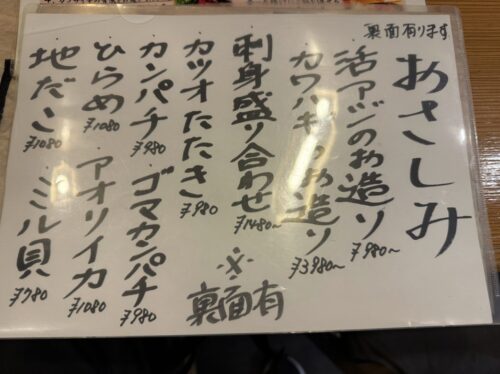 裏面有ります
おさしみ
活アジのお造り
¥980~
カワハギのお造り
¥3980~
刺身盛り合わせ
¥1480~
※
裏面有
カツオたたき
¥980
カンパチ
¥980
ゴマカンパチ
¥980
ひらめ
¥1080
アオリイカ
¥1080
地だこ
¥1080
ミル貝
¥780